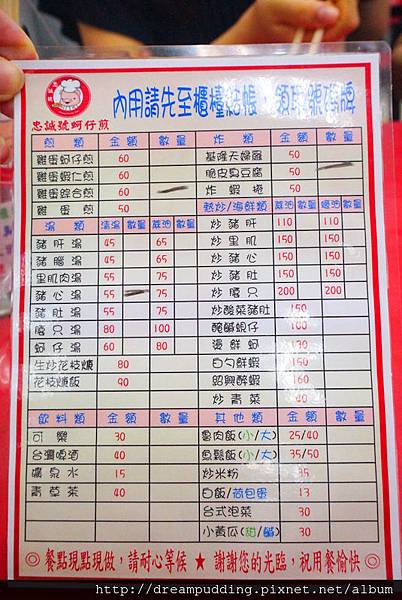 內用請先至櫃檯結帳、領取號碼牌
忠誠號蚵仔煎
煎類 金額 數量
雞蛋蚵仔煎 60
雞蛋蝦仁煎 60
雞蛋綜合煎 60
雞蛋煎 50
湯類 清湯 數量 麻油 數量
豬肝湯 45 65
豬腦湯 45 65
里肌肉湯 55 75
豬心湯 55 75
豬肚湯 55 75
腰只湯 80 100
蚵仔湯 60 80
生炒花枝焿 80
花枝焿飯 90
飲料類 金額 數量
可樂 30
台灣啤酒 40
礦泉水 15
青草茶 40
炸類 金額 數量
基隆天婦羅 50
脆皮臭豆腐 50
炸蝦捲 50
熱炒/海鮮類 蔴油 數量 數量
炒豬肝 110 110
炒里肌 150 150
炒豬心 150 150
炒豬肚 150 150
炒腰只 200 200
炒酸菜豬肚 150
醃鹹蜆仔 100
海鮮蚵 130
白勺鮮蝦 150
紹興醉蝦 160
炒青菜 40
其他類 金額 數量
魯肉飯(小/大) 25/40
魚鬆飯(小/大) 35/50
炒米粉 35
白飯/荷包蛋 13
台式泡菜 30
小黃瓜(甜/鹹) 30
◎餐點現點現做，請耐心等候 ★ 謝謝您的光臨，祝用餐愉快◎
http://dreampudding.pixnet.net/album